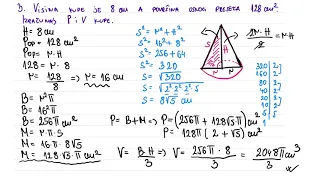 3. VISINA KUPE JE 8 cm A POVRŠINA OSNOG PRESJEKA 128 cm²
IZRAČUNAJ P i V KUPE.
H = 8 cm
Pop = 128 cm²
Pop = M·H
128 = M·8
M = 128/8 => M = 16 cm
B = M²π
B = 16²π
B = 256π cm²
M = M·π·s
M = 16·π·8√5
M = 128√5π cm²
s² = M² + H²
s² = 16² + 8²
s² = 256 + 64
s² = 320
s = √320
s = √2² 2² 2² 5
s = 8√5 cm
s
H
M
2M·H / 2 = M·H
320 | 2
160 | 2
80 | 2
40 | 2
20 | 2
10 | 2
5 | 5
1
P = B + M => P = (256π + 128√5π) cm²
P = 128π (2 + √5) cm²
V = B·H / 3 V = 256π · 8 / 3 = 2048π cm³ / 3